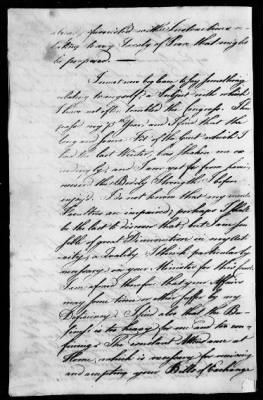 abroad, furnished with Instructions re-
lating to any Treaty of Peace that might
be proposed. —
I must now beg leave to say something
relating to myself, a Subject with which
I have not often troubled the Congress. I have
passed my 75th Year, and I find that the
long and severe Fit of the Gout which I
had the last Winter, has shaken me ex-
ceedingly, and I am yet far from having
recovered the Bodily Strength I before
enjoy'd. I do not know that my mental
Faculties are impaired; perhaps I shall
be the last to discover that; but I am sen-
sible of great Diminution in my Acti-
vity, a Quality I think particularly
necessary in your Minister for this Court.
I am afraid therefore that your Affairs
may some time or other suffer by my
Deficiency. I find also that the Bu-
siness is too heavy for me and too con-
fining. The constant Attendance at
Home, which is necessary for receiving
and accepting your Bills of Exchange